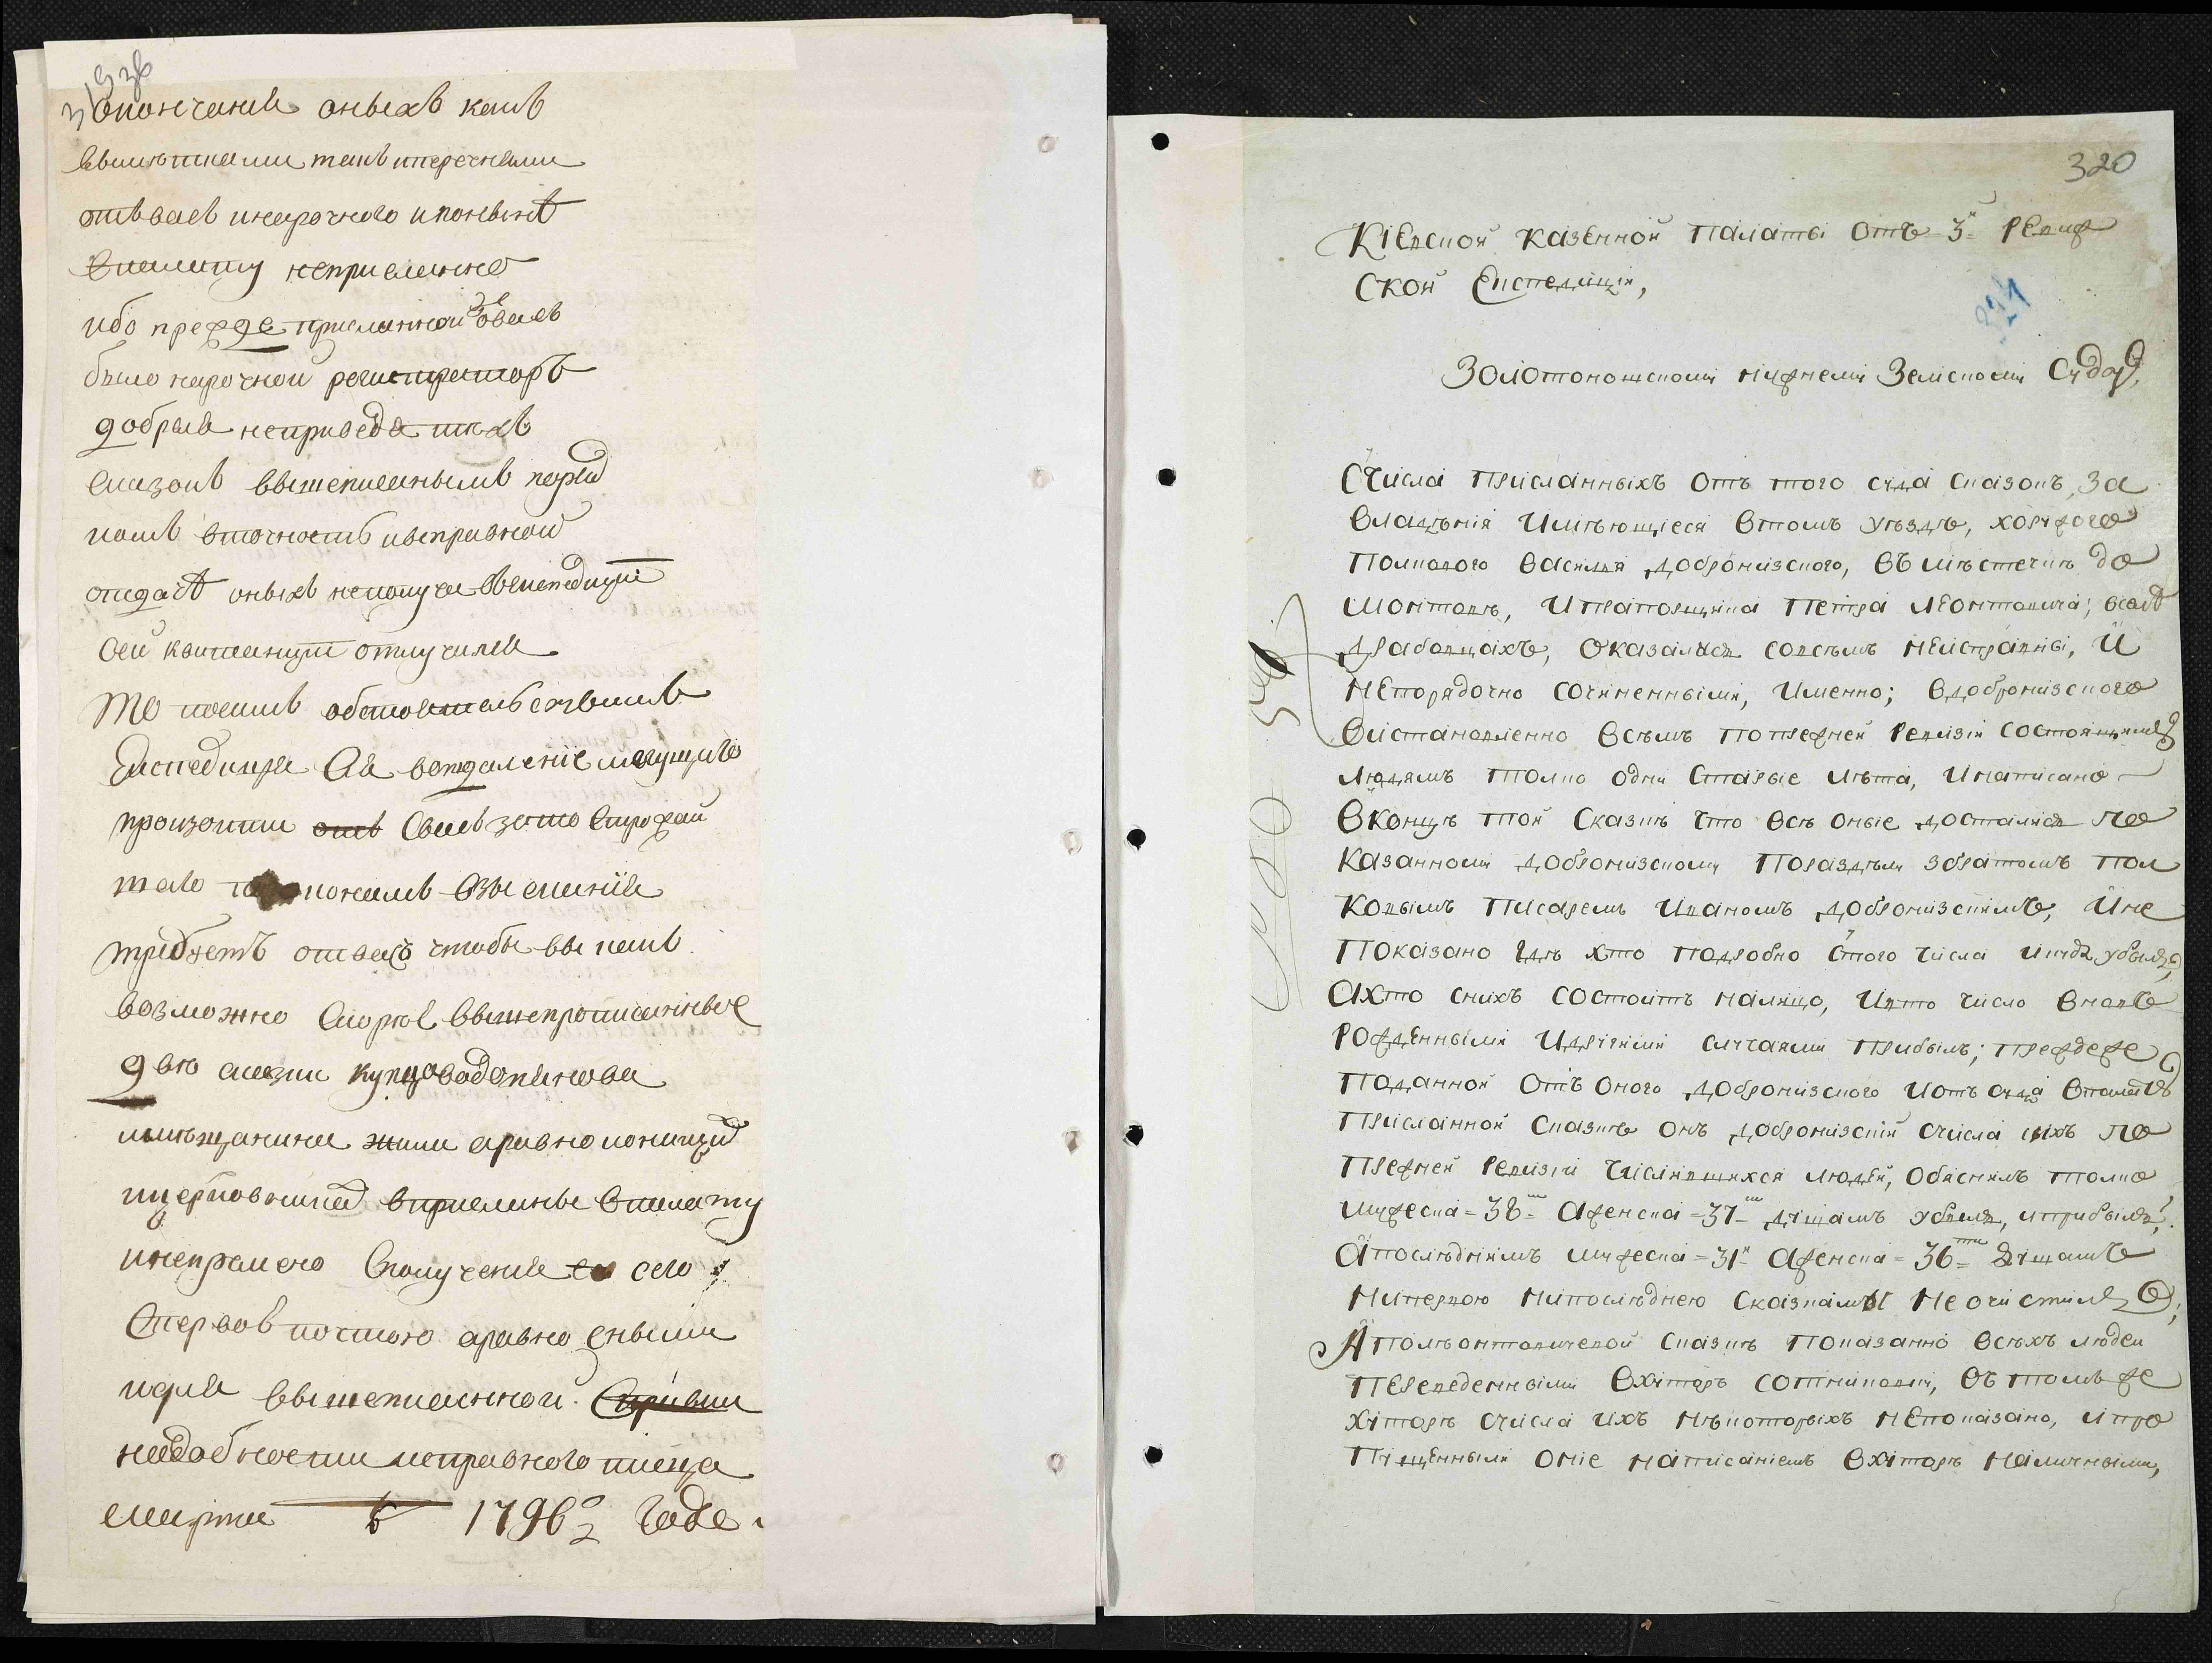 319 зв
окончании оныхъ какъ
выписками такъ и перечнями
отъ васъ и нарочного и поныне
в палату неприслание
ибо прежде присланной от васъ
было нарочной регистраторъ
добрыя неприведя техъ
сказокъ вышеписаннымъ поряд
комъ в точность и исправной
отдаче оныхъ неполуча в експедиціи
сей квитанціи отлучился
то поелику обстоятельствамъ
Експедиція Ая воотдаленіе могущего
произойти отъ Свасъ за то штрафай
того законамъ взысканія
требуетъ отъ васъ чтобы вы какъ
возможно скорее вышепрописанные
две сказки купцова
мещанина равно
церковника в присланые в палату
и непременно с получения сего
с первою почтою а равно с ними
и для вышеписанной
надобности исправного писца
марта 6 1796го Года
320
Кіевской казенной палаты отъ 3й ревиж
ской Експедиціи,
224
Золотоношскому нижнему Земскому Суду,
Счисла присланныхъ отъ того суда сказокъ, за
владенія имеющіеся втомъ уезде, хоружого
полкового василия доброниского, въ местечке до
монтове, ипрапорщика петра леонтовича, вселе
драбовцахъ, оказалися совсемъ неисправны, и
непорядочно сочиненными, именно; вдоброниского
виставленно всемъ попрежней ревизіи состоящимъ
людямъ толко одни старые лета, инаписано
вконце той сказки что все оные досталися по
казанному доброnискому поразделу збратомъ пол
ковымъ писаремъ иваномъ доброnискимъ, ине
показано где хто подробно стого числа икуда убылъ,
ахто снихъ состоитъ налицо, ивто число вновь
рожденными идругими случаями прибылъ; преждеже
поданной отъ оного доброниского иотъ суда впалату
присланной сказке онъ доброниский счисла ихъ по
прежней ревизіи числившихся людей, обяснилъ толко
мужеска = 38 = аженска = 37 = душамъ убыль, иприбыль.
апоследнимъ мужеска = 31 = аженска = 36 = душамъ
нипервою нипоследнею сказками неочистилъ;
Аполеонтовичевой сказке показанно всехъ людей
переведенными вхуторъ сотниковку, въ томъже
хуторе счисла ихъ некоторыхъ непоказано, ипро
пущенными оніе написаніемъ вхуторе наличными,